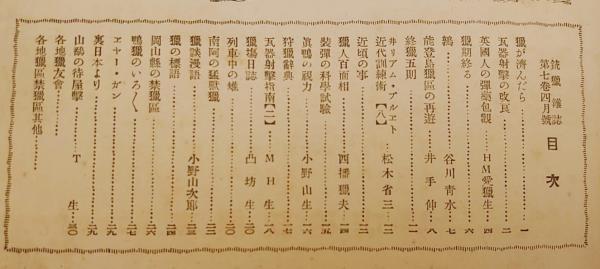 銃獵雜誌
第七卷四月號
目次
獵が濟んだら………一
瓦器射擊の改良………二
英國人の彈藥包觀……HM愛獵生…四
獵期終る………六
鶉………谷川靑水…七
能登島獵區の再遊……井手伸…八
終獵五則
井リアム・アルエト
近代訓練術【八】……松木省三…一三
近頃の事………一三
獵人百面相……四播獵夫…一四
裝彈の科學試驗………一五
眞鴨の視力……小野山生…一六
狩獵辭典………一七
瓦器射擊指南【二】……MH生…一八
獵塲日誌……凸坊生…二〇
列車中の雉………二〇
南阿の猛獸獵………二三
獵談漫語……小野山次郞…二三
獵の標語………二四
岡山縣の禁獵區………二六
鴨獵のいろ〱………二七
ヱヤー・ガン………二九
裏日本より………二九
山鷸の待屋擊……T生…三〇
各地獵友會………
各地獵區禁獵區其他………